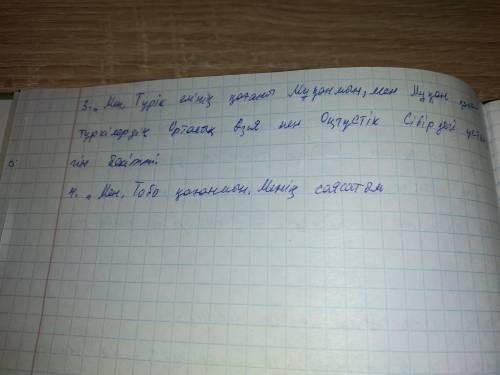 3. „ Мен, Түрік елінің қағаны Мұқанмын, мен Мұқан
түркілердің Орталық Азия пен Оңтүстік Сібірдегі үстем
гін бекітті
4. „ Мен, Тобо қағанмын. Менің саясатым